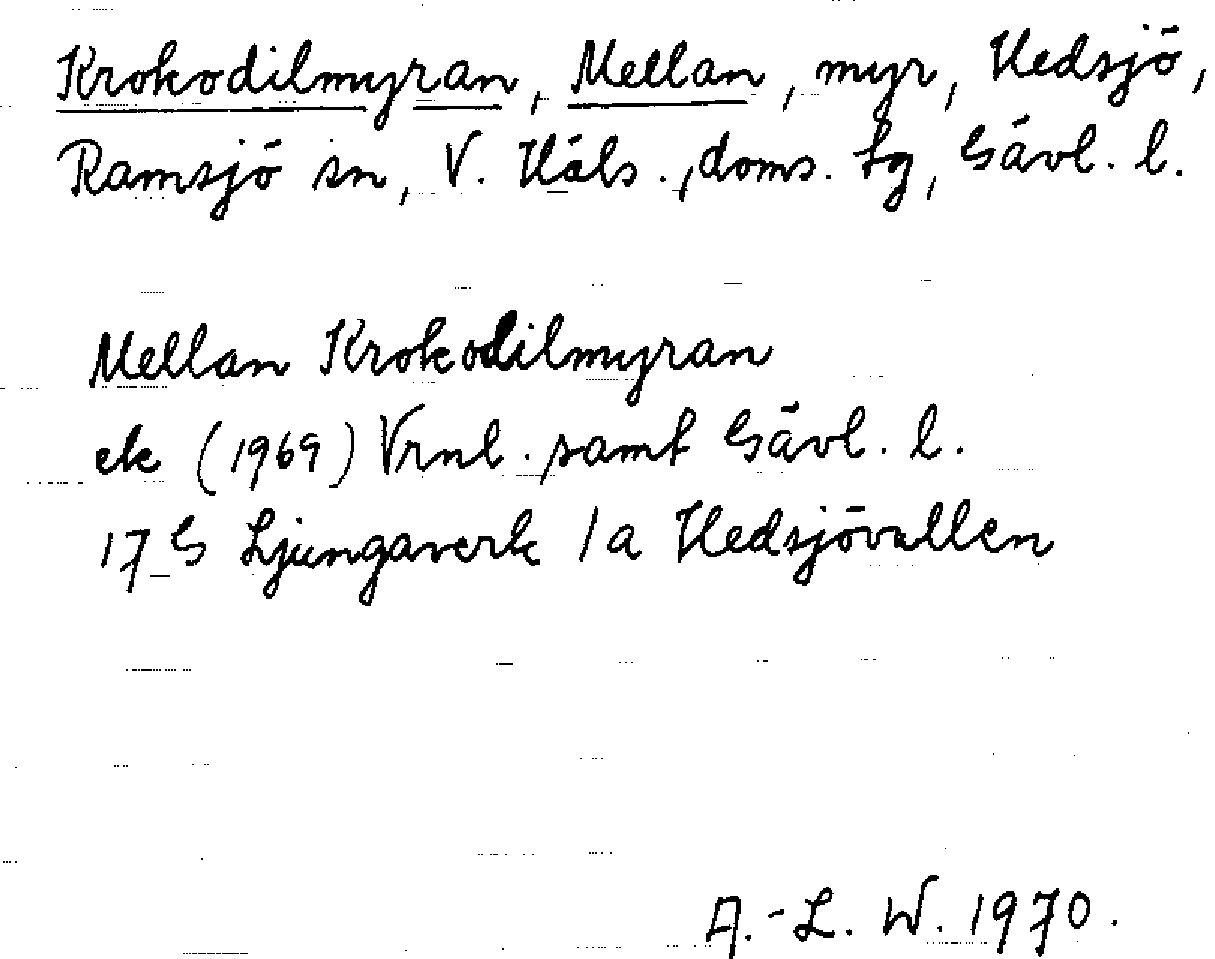 Krokodilmyran, Mellan, myr, Hedsjö,
Ramsjö sn, V. Häls., doms. tg, Gävl. l.
Mellan Krokodilmyran
ek (1969) Vrnl. samt Gävl. l.
17 G Ljungaverk 1a Hedsjövallen
A.-L. W. 1970.